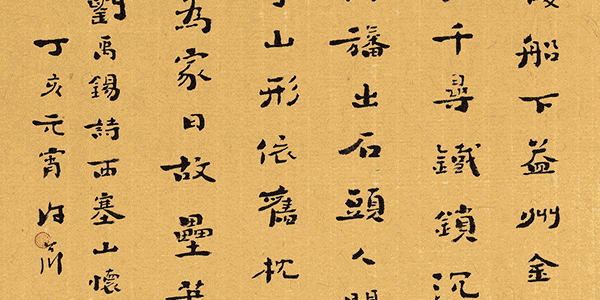 船下益州金
千尋鐵鎖沉
旛出石頭人
山形依舊枕
為家日故壘
劉禹錫詩西塞山懷
丁亥元宵